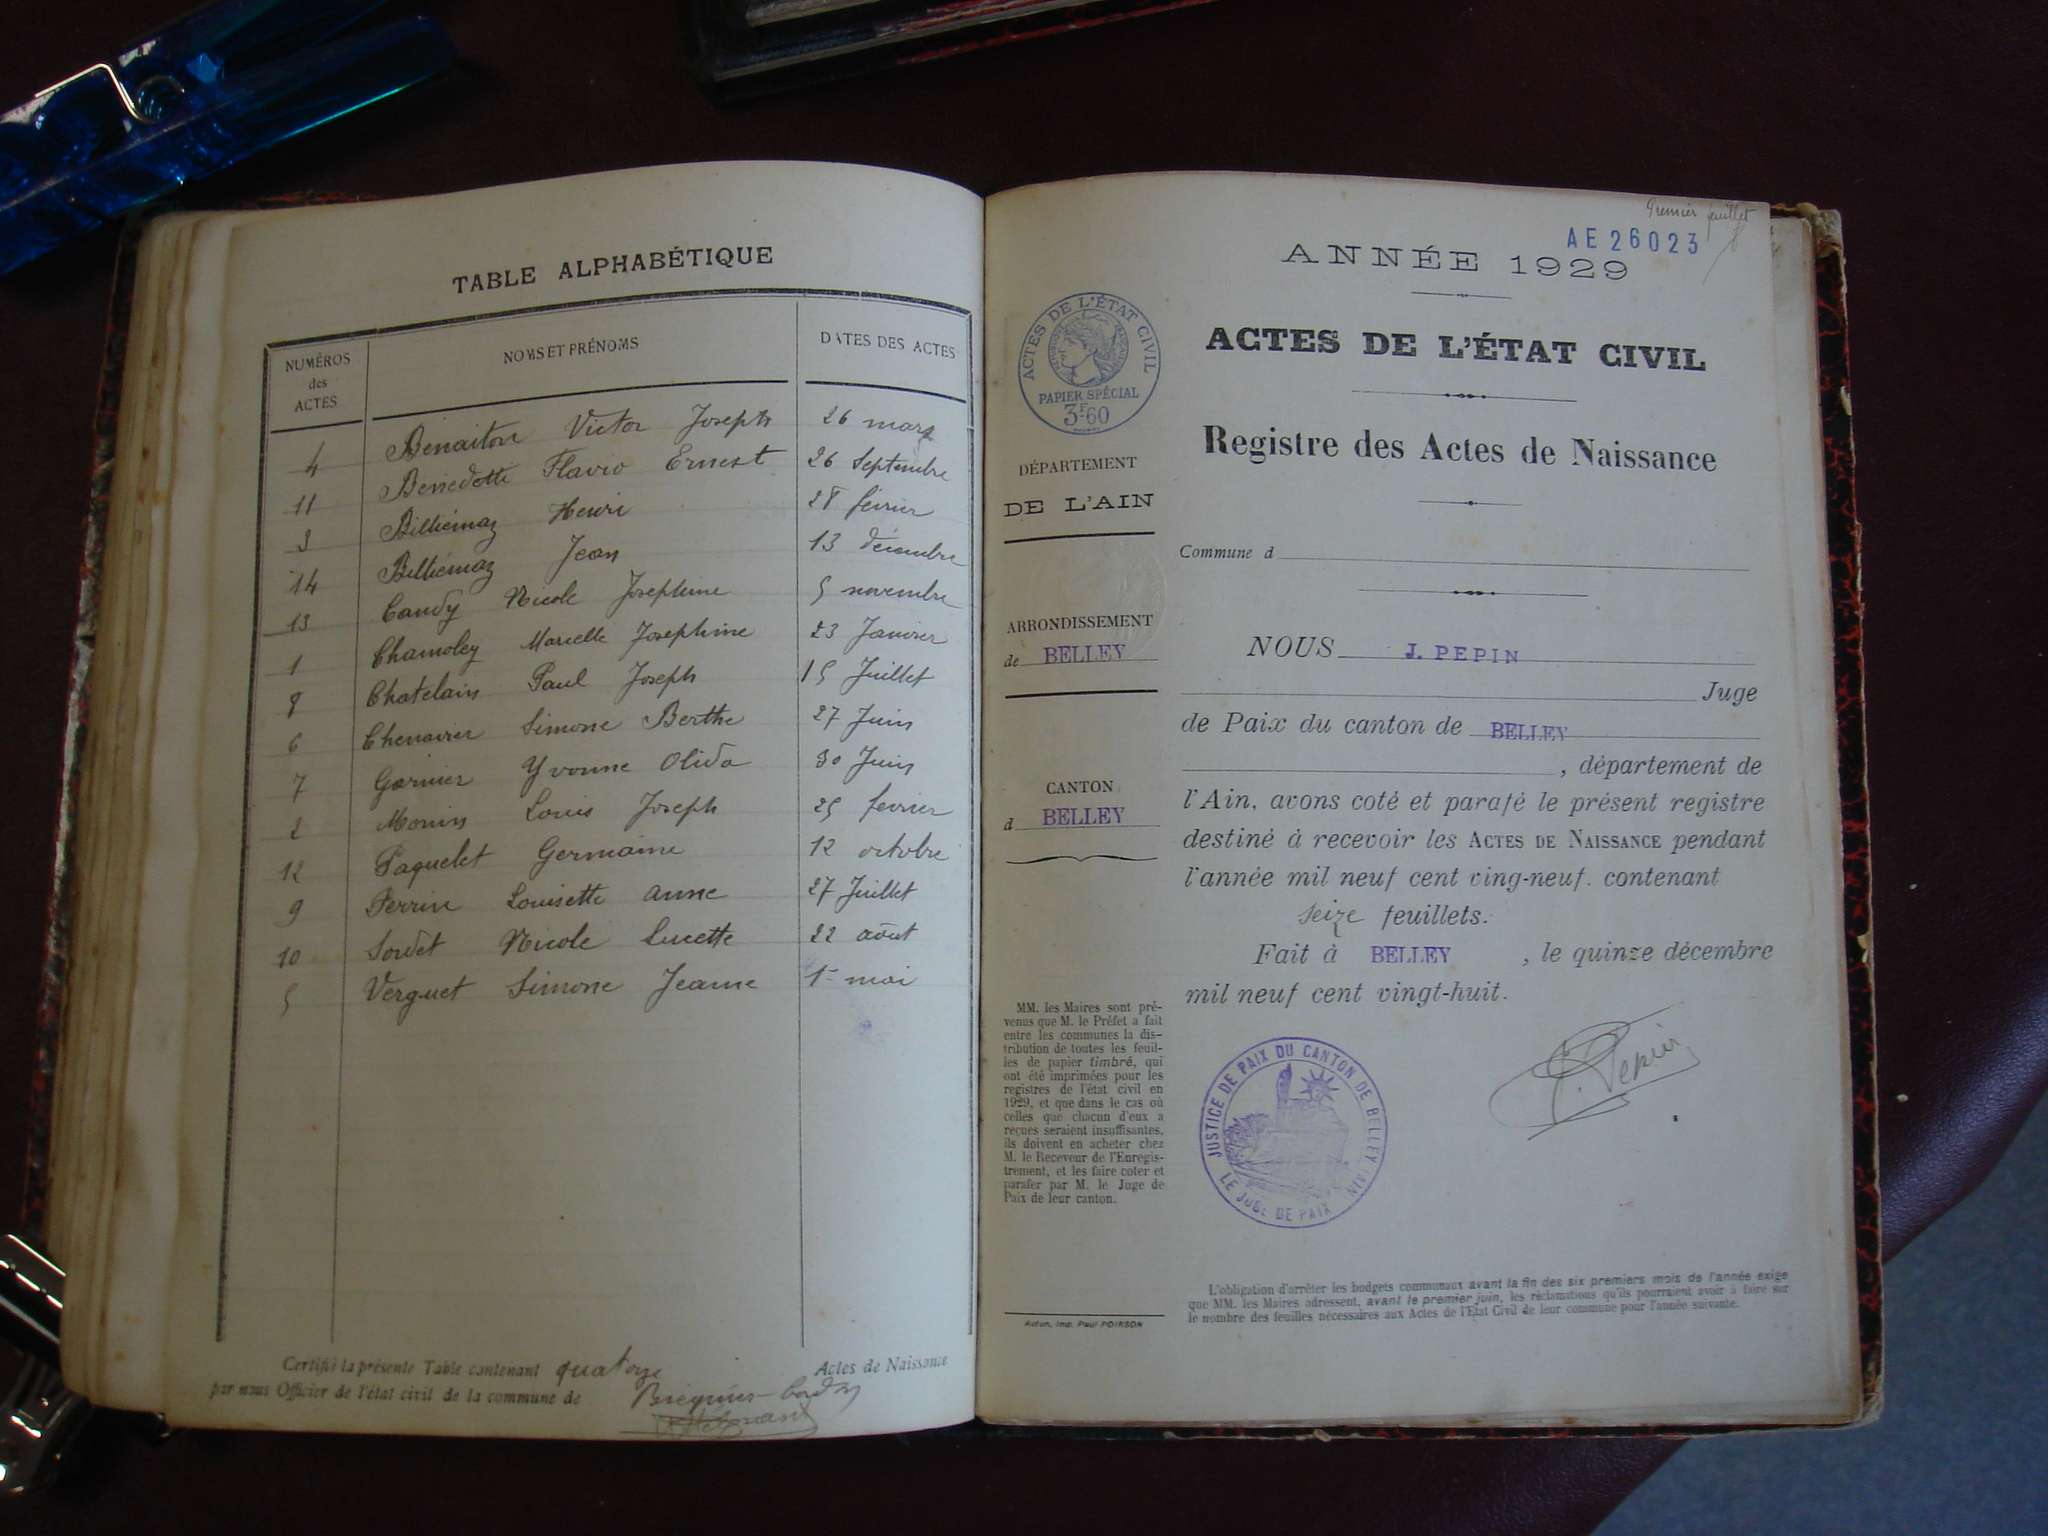 TABLE ALPHABÉTIQUE
NUMÉROS des ACTES NOMS ET PRÉNOMS DATES DES ACTES
4 Benaiton Victor Joseph 26 mars
11 Benedetti Flavio Ernest 26 Septembre
3 Billiémaz Henri 28 février
14 Billiémaz Jean 13 décembre
13 Candy Nicole Josephine 5 novembre
1 Chamoley Marcelle Josephine 23 Janvier
8 Chatelain Paul Joseph 15 Juillet
6 Chenavier Simone Berthe 27 Juin
7 Garnier Yvonne Olida 30 Juin
2 Monin Louis Joseph 25 fevrier
12 Paquelet Germaine 12 octobre
9 Perrin Louisette anne 27 Juillet
10 Sordet Nicole Lucette 22 août
5 Verguet Simone Jeanne 1er mai
Certifié la présente Table contenant quatorze Actes de Naissance
par nous Officier de l'état civil de la commune de Brégnier-Cordon
Premier feuillet
AE 26023
ANNÉE 1929
ACTES DE L'ÉTAT CIVIL
Registre des Actes de Naissance
ACTES DE L'ÉTAT CIVIL
RÉPUBLIQUE FRANÇAISE
PAPIER SPÉCIAL
3F-60
DÉPARTEMENT
DE L'AIN
ARRONDISSEMENT
de BELLEY
CANTON
d BELLEY
MM. les Maires sont pré-
venus que M. le Préfet a fait
entre les communes la dis-
tribution de toutes les feuil-
les de papier timbré, qui
ont été imprimées pour les
registres de l'état civil en
1929, et que dans le cas où
celles que chacun d'eux a
reçues seraient insuffisantes,
ils doivent en acheter chez
M. le Receveur de l'Enregis-
trement, et les faire coter et
parafer par M. le Juge de
Paix de leur canton.
Autun, Imp. Paul POIRSON
Commune d
NOUS J. PEPIN
Juge
de Paix du canton de BELLEY
, département de
l'Ain, avons coté et parafé le présent registre
destiné à recevoir les ACTES DE NAISSANCE pendant
l'année mil neuf cent ving-neuf. contenant
seize feuillets.
Fait à BELLEY , le quinze décembre
mil neuf cent vingt-huit.
J. Pepin
JUSTICE DE PAIX DU CANTON DE BELLEY AIN
LE JUGE DE PAIX
L'obligation d'arrêter les budgets communaux avant la fin des six premiers mois de l'année exige
que MM. les Maires adressent, avant le premier juin, les réclamations qu'ils pourraient avoir à faire sur
le nombre des feuilles nécessaires aux Actes de l'Etat Civil de leur commune pour l'année suivante.